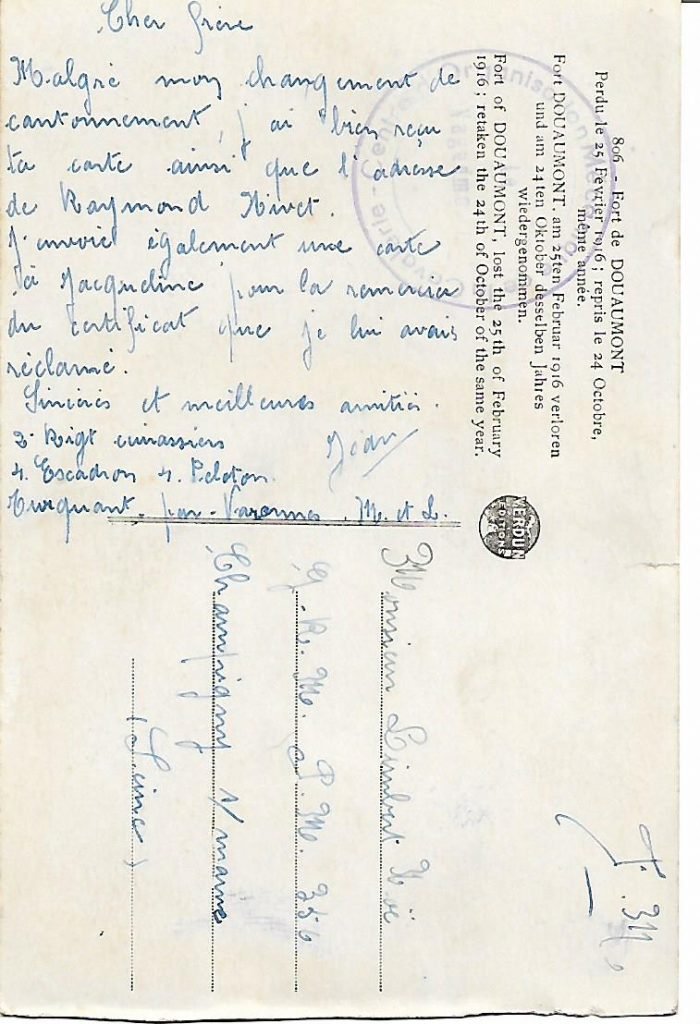 Cher frère
Malgré mon changement de
cantonnement, j'ai bien reçu
ta carte ainsi que l'adresse
de Raymond Nivet.
J'envoie également une carte
à Jacqueline pour la remercier
du certificat que je lui avais
réclamé.
Sincères et meilleures amitiés.
2e Rigt cuirassiers
Jean
4. Escadron 4. Peloton
Turquant. par. Varennes. M. et L.
806 - Fort de DOUAUMONT
Perdu le 25 Février 1916 ; repris le 24 Octobre,
même année.
Fort DOUAUMONT, am 25ten Februar 1916 verloren
und am 24ten Oktober desselben Jahres
wiedergenommen.
Fort of DOUAUMONT, lost the 25th of February
1916 ; retaken the 24th of October of the same year.
Centre d'Organisation
Cavalerie
VERDUN
EDITIONS
F. M.
Monsieur Limbert
G. R. M. P. M. 356
Champigny s/ marne
(Seine)